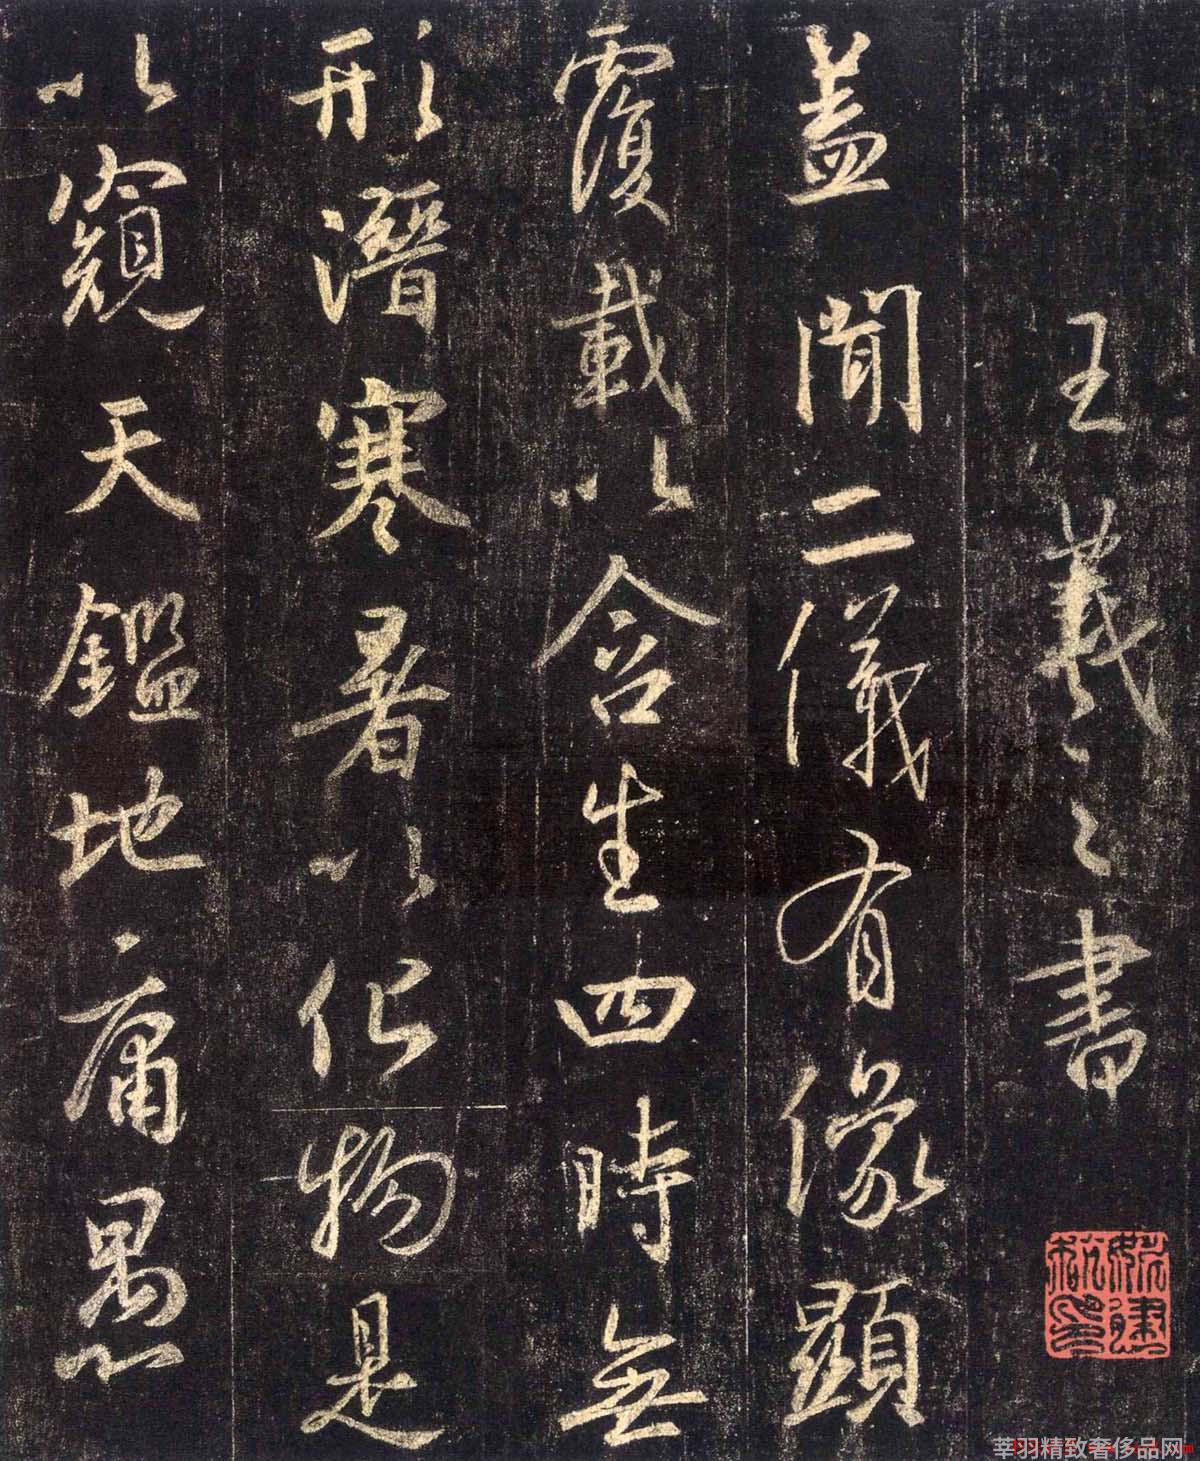 王羲之書
蓋聞二儀有像顯
覆載以含生四時無
形潛寒暑以化物是
以窺天鑑地庸愚
莘羽精致奢侈品网